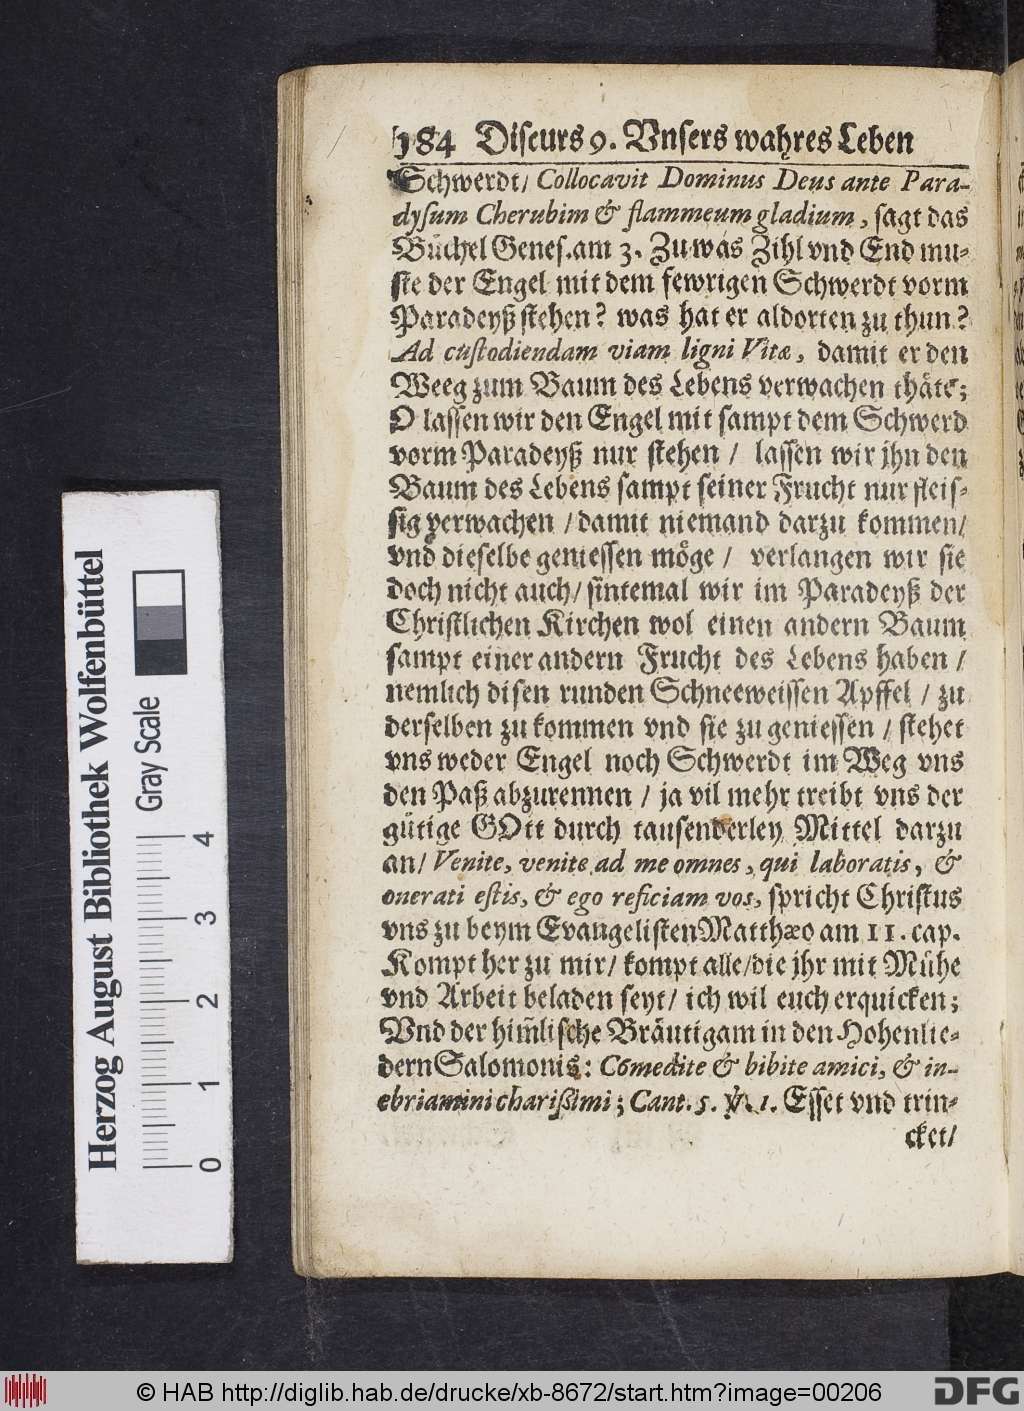 184 Discurs 9. Vnsers wahres Leben
Schwerdt/ Collocavit Dominus Deus ante Para-
dysum Cherubim & flammeum gladium, sagt das
Büchel Genes. am 3. Zu was Zihl vnd End mu-
ste der Engel mit dem fewrigen Schwerdt vorm
Paradeyß stehen? was hat er aldorten zu thun?
Ad custodiendam viam ligni Vitæ, damit er den
Weeg zum Baum des Lebens verwachen thäte;
O lassen wir den Engel mit sampt dem Schwerd
vorm Paradeyß nur stehen / lassen wir jhn den
Baum des Lebens sampt seiner Frucht nur fleis-
sig verwachen / damit niemand darzu kommen/
vnd dieselbe geniessen möge / verlangen wir sie
doch nicht auch/ sintemal wir im Paradeyß der
Christlichen Kirchen wol einen andern Baum
sampt einer andern Frucht des Lebens haben /
nemlich disen runden Schneeweissen Apffel / zu
derselben zu kommen vnd sie zu geniessen / stehet
vns weder Engel noch Schwerdt im Weg vns
den Paß abzurennen / ja vil mehr treibt vns der
gütige GOtt durch tausenderley Mittel darzu
an/ Venite, venite ad me omnes, qui laboratis, &
onerati estis, & ego reficiam vos, spricht Christus
vns zu beym Evangelisten Matthæo am 11. cap.
Kompt her zu mir/ kompt alle/die jhr mit Mühe
vnd Arbeit beladen seyt/ ich wil euch erquicken;
Vnd der him̃lische Bräutigam in den Hohenlie-
dern Salomonis: Comedite & bibite amici, & in-
ebriamini charißimi; Cant. 5. ℣. 1. Esset vnd trin-
cket/
Herzog August Bibliothek Wolfenbüttel
Gray Scale
0 1 2 3 4
© HAB http://diglib.hab.de/drucke/xb-8672/start.htm?image=00206
DFG